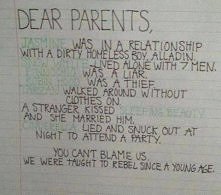 DEAR PARENTS,
JASMINE WAS IN A RELATIONSHIP
WITH A DIRTY HOMELESS BOY, ALLADIN.
LIVED ALONE WITH 7 MEN.
WAS A LIAR.
WAS A THIEF.
TARZAN WALKED AROUND WITHOUT
CLOTHES ON.
A STRANGER KISSED SLEEPING BEAUTY
AND SHE MARRIED HIM.
LIED AND SNUCK OUT AT
NIGHT TO ATTEND A PARTY.
YOU CAN'T BLAME US.
WE WERE TAUGHT TO REBEL SINCE A YOUNG AGE.